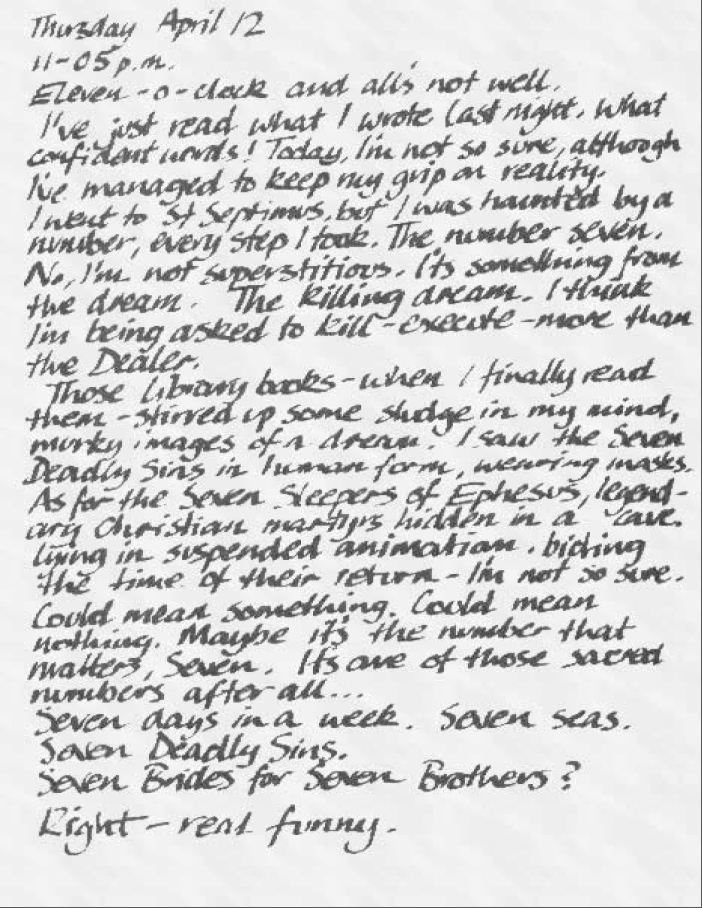 Thursday April 12
11-05 p.m.
Eleven-o-clock and all's not well.
I've just read what I wrote last night. What
confident words! Today, I'm not so sure, although
I've managed to keep my grip on reality.
I went to St Septimus, but I was haunted by a
number, every step I took. The number seven.
No, I'm not superstitious. It's something from
the dream. The killing dream. I think
I'm being asked to kill-execute-more than
the Dealer.
Those library books-when I finally read
them-stirred up some sludge in my mind,
murky images of a dream. I saw the Seven
Deadly Sins in human form, wearing masks.
As for the Seven Sleepers of Ephesus, legend-
ary Christian martyrs hidden in a cave,
lying in suspended animation, biding
the time of their return-I'm not so sure.
Could mean something. Could mean
nothing. Maybe it's the number that
matters, Seven. It's one of those sacred
numbers after all...
Seven days in a week. Seven seas.
Seven Deadly Sins.
Seven Brides for Seven Brothers?
Right-real funny.